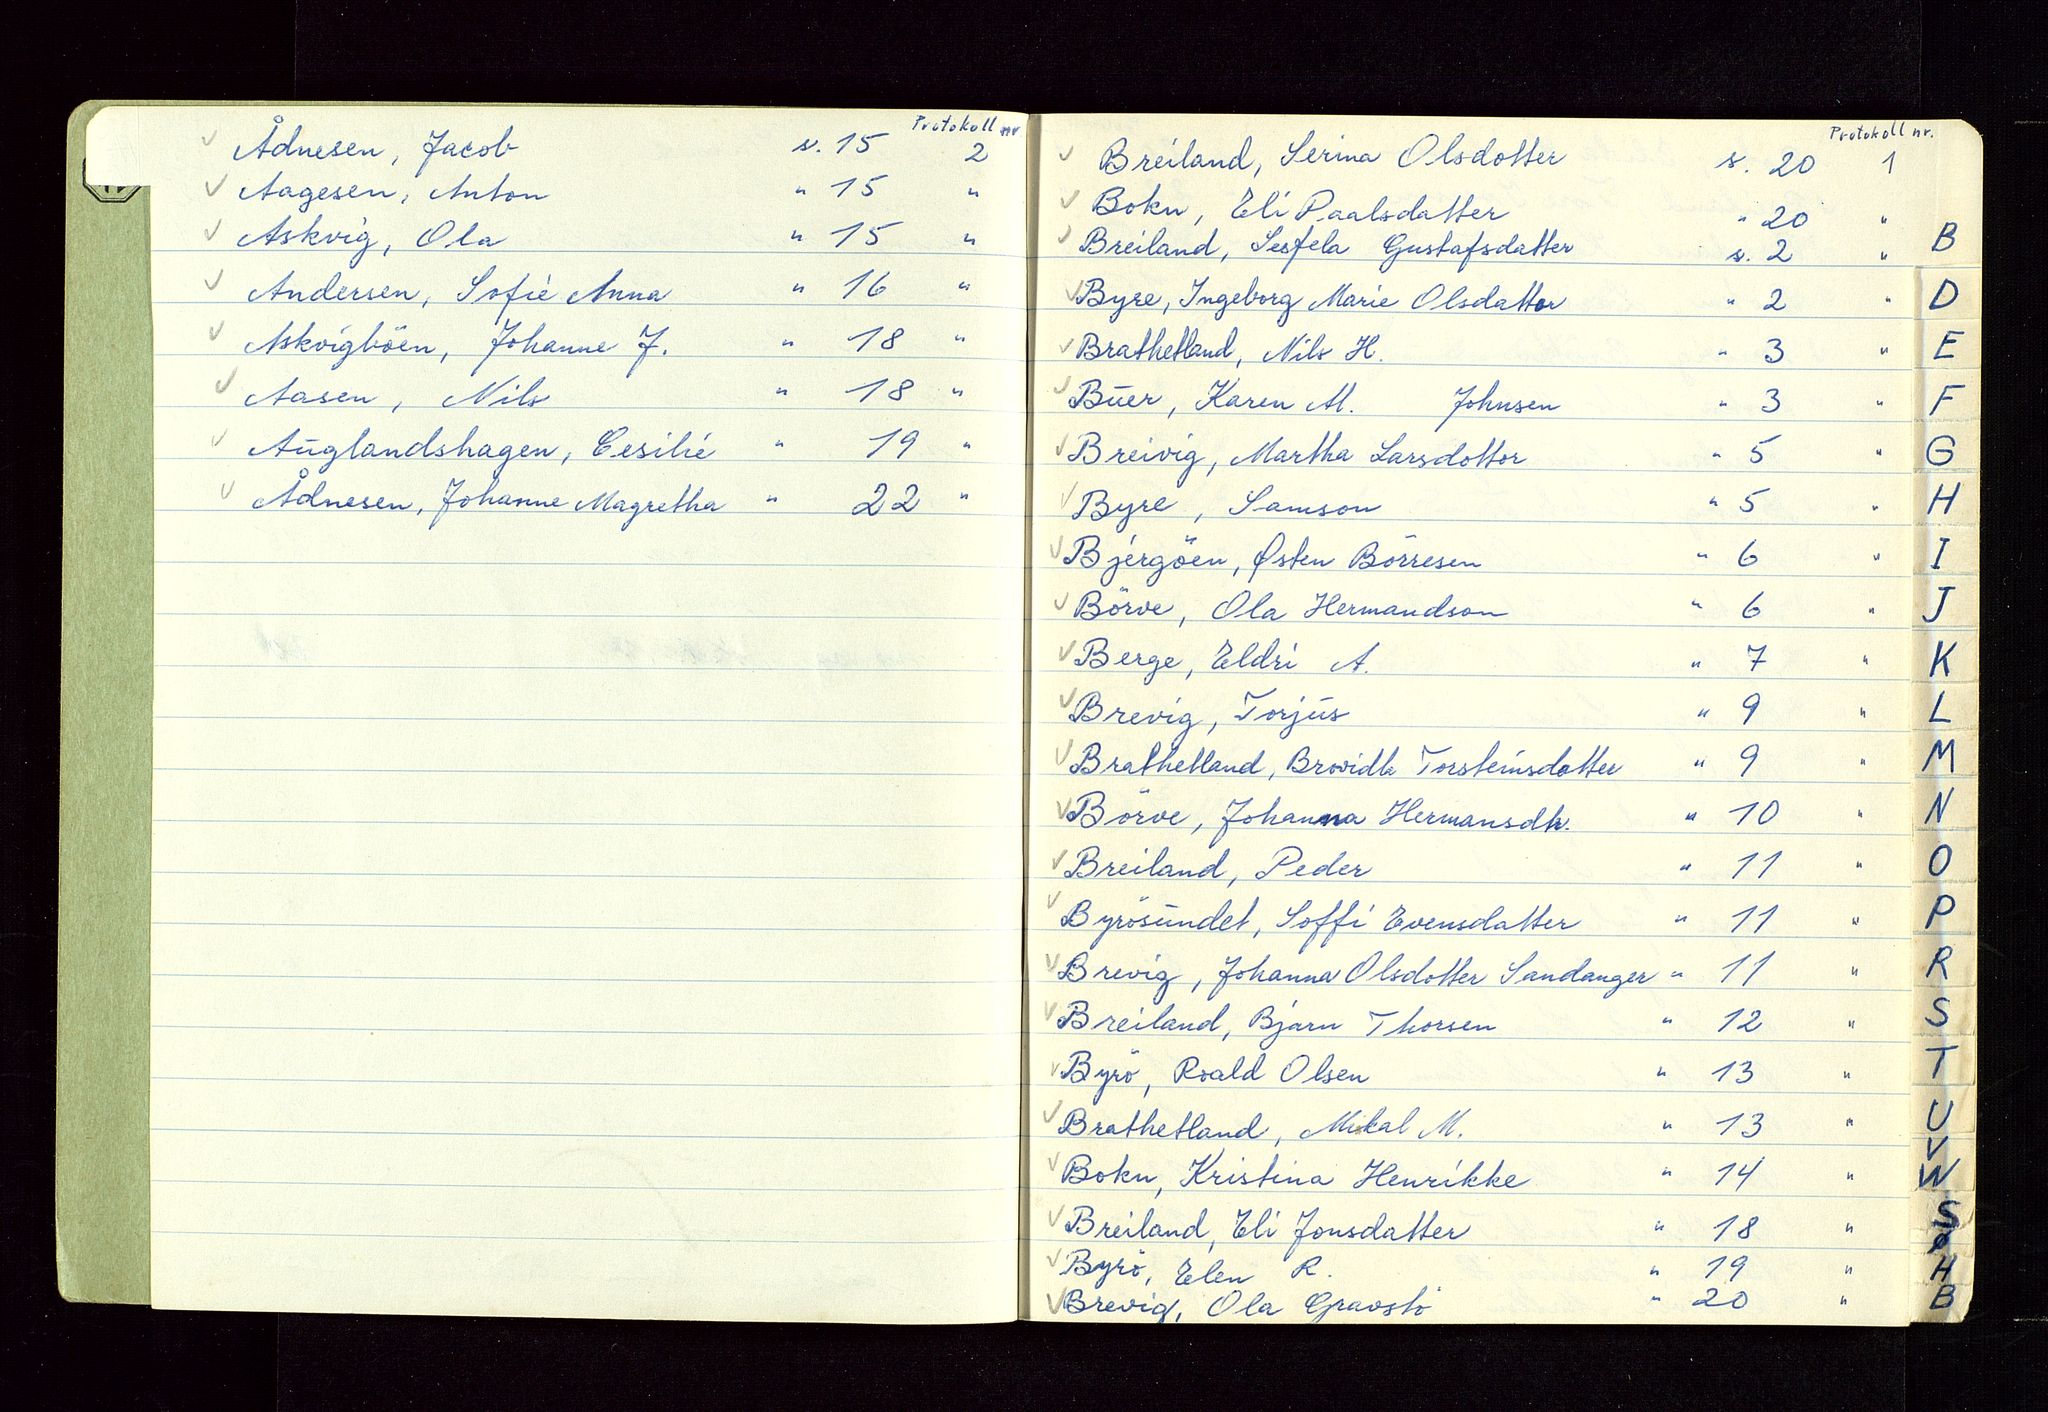 Protokoll nr
√ Ådnesen, Jacob s. 15 2
√ Aagesen, Anton " 15 "
√ Askvig, Ola " 15 "
√ Andersen, Sofie Anna " 16 "
√ Askvigböen, Johanne J. " 18 "
√ Aasen, Nils " 18 "
√ Auglandshagen, Cesilie " 19 "
√ Ådnesen, Johanne Magretha " 22 "
Protokoll nr.
√ Breiland, Serina Olsdotter s. 20 1
√ Bokn, Eli Paalsdatter " 20 "
√ Breiland, Sesfela Gustafsdatter s. 2 "
√ Byre, Ingeborg Marie Olsdatter " 2 "
√ Brathetland, Nils H. " 3 "
√ Buer, Karen M. Johnsen " 3 "
√ Breivig, Martha Larsdotter " 5 "
√ Byre, Samson " 5 "
√ Bjergöen, Østen Börresen " 6 "
√ Börve, Ola Hermandson " 6 "
√ Berge, Eldri A. " 7 "
√ Brevig, Torjus " 9 "
√ Brathetland, Torsteinsdotter " 9 "
√ Börve, Johanna Hermansdtr. " 10 "
√ Breiland, Peder " 11 "
√ Byrösundet, Soffi Evensdatter " 11 "
√ Brevig, Johanna Olsdotter Sandanger " 11 "
√ Breiland, Bjarn Thorsen " 12 "
√ Byrö, Roald Olsen " 13 "
√ Brathetland, Mikal M. " 13 "
√ Bokn, Kristina Henrikke " 14 "
√ Breiland, Eli Jonsdatter " 18 "
√ Byrö, Elen R. " 19 "
√ Brevig, Ola Gravstö " 20 "
B
D
E
F
G
H
I
J
K
L
M
N
O
P
R
S
T
U
V
W
S
H
B